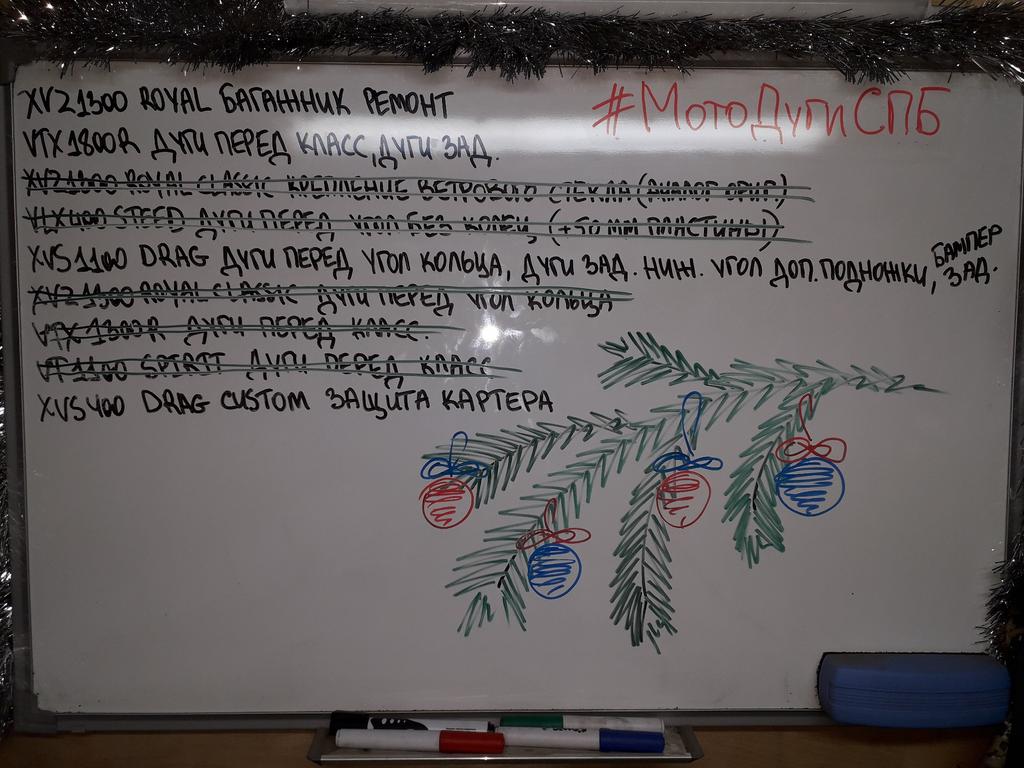 XVZ1300 ROYAL БАГАЖНИК РЕМОНТ
#МотоДугиСПБ
VTX1800R ДУГИ ПЕРЕД КЛАСС, ДУГИ ЗАД.
XVZ1300 ROYAL CLASSIC КРЕПЛЕНИЕ ВЕТРОВОГО СТЕКЛА (АНАЛОГ ОРИГ)
VLX400 STEED ДУГИ ПЕРЕД УГОЛ БЕЗ КОЛЕЦ (+50 ММ ПЛАСТИНЫ)
XVS1100 DRAG ДУГИ ПЕРЕД УГОЛ КОЛЬЦА, ДУГИ ЗАД. НИЖ. УГОЛ ДОП. ПОДНОЖКИ, БАМПЕР ЗАД.
XVZ1300 ROYAL CLASSIC ДУГИ ПЕРЕД УГОЛ КОЛЬЦА
VTX 1300R ДУГИ ПЕРЕД КЛАСС.
VT1100 SPIRIT ДУГИ ПЕРЕД КЛАСС
XVS400 DRAG CUSTOM ЗАЩИТА КАРТЕРА